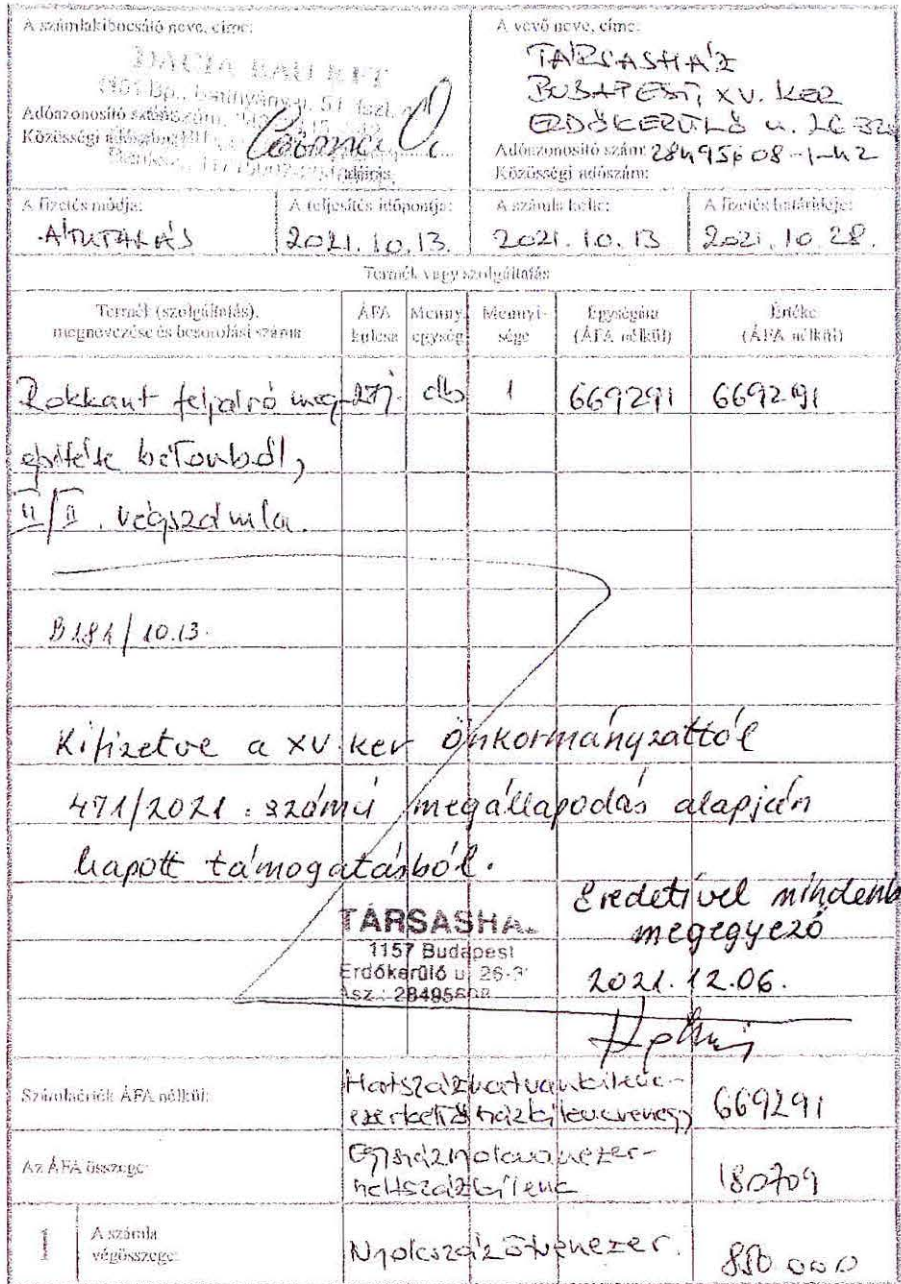 A számlakibocsátó neve, címe:
DACIA BAU KFT
Adóazonosító szám:
Közösségi adószám:
aláírás
A vevő neve, címe:
TÁRSASHÁZ
BUDAPEST, XV. KER
ERDŐKERÜLŐ u. 26-32
Adóazonosító szám: 28495608-1-42
Közösségi adószám:
A fizetés módja:
ÁTUTALÁS
A teljesítés időpontja:
2021.10.13.
A számla kelte:
2021.10.13
A fizetés határideje:
2021.10.28.
Termék vagy szolgáltatás
Termék (szolgáltatás) megnevezése és besorolási száma
ÁFA kulcsa
Menny. egység
Mennyisége
Egységára (ÁFA nélkül)
Értéke (ÁFA nélkül)
Rokkant feljáró meg- 27% db 1 669291 669291
építése betonból,
II/II. végszámla.
B181/10.13.
Kifizetve a XV. ker önkormányzattól
471/2021. számú megállapodás alapján
kapott támogatásból.
TÁRSASHÁ
1157 Budapest
Erdőkerülő u. 26-3
Asz.: 28495608
Eredetivel mindenb
megegyező
2021.12.06.
Számlaérték ÁFA nélkül:
Hatszázhatvankilenc-
ezerkettőszázkilencvenegy 669291
Az ÁFA összege:
Egyszáznyolcvanezer-
hétszázkilenc 180709
1 A számla végösszege:
Nyolcszázötvenezer. 850 000